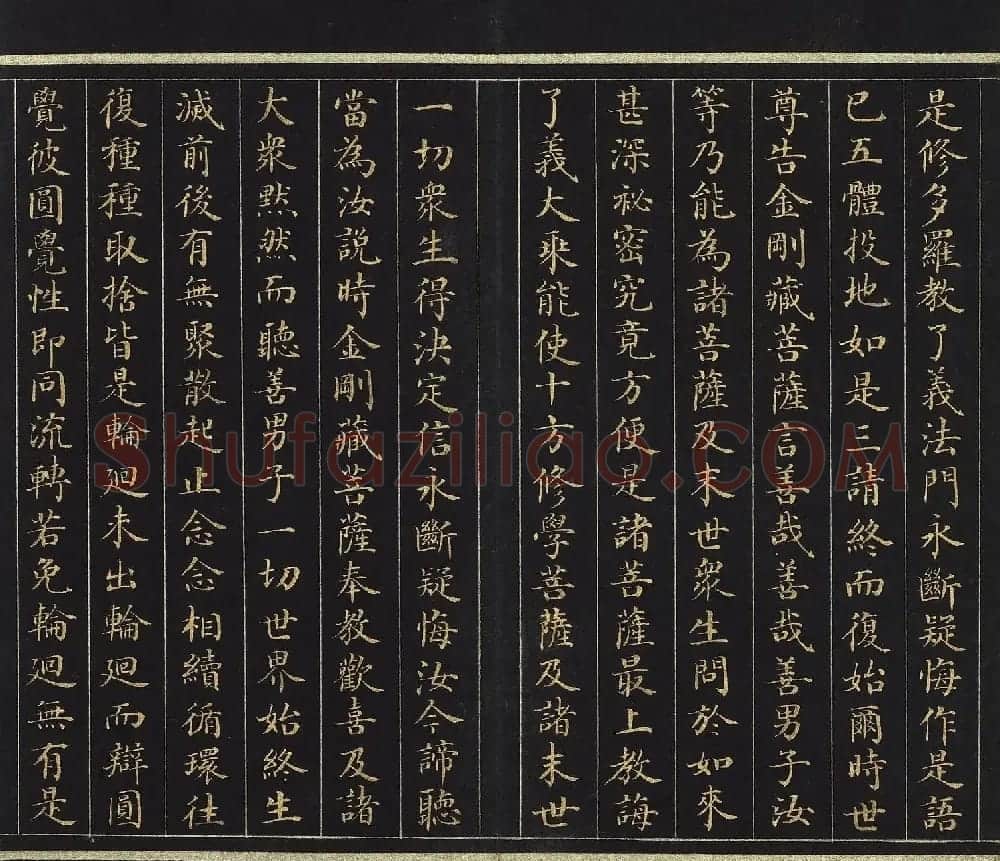 是修多羅教了義法門永斷疑悔作是語
已五體投地如是三請終而復始爾時世
尊告金剛藏菩薩言善哉善哉善男子汝
等乃能為諸菩薩及末世衆生問於如來
甚深祕密究竟方便是諸菩薩最上教誨
了義大乘能使十方修學菩薩及諸末世
一切衆生得決定信永斷疑悔汝今諦聽
當為汝説時金剛藏菩薩奉教歡喜及諸
大衆默然而聽善男子一切世界始終生
滅前後有無聚散起止念念相續循環往
復種種取捨皆是輪廻未出輪廻而辯圓
覺彼圓覺性即同流轉若免輪廻無有是
Shufaziliao.COM